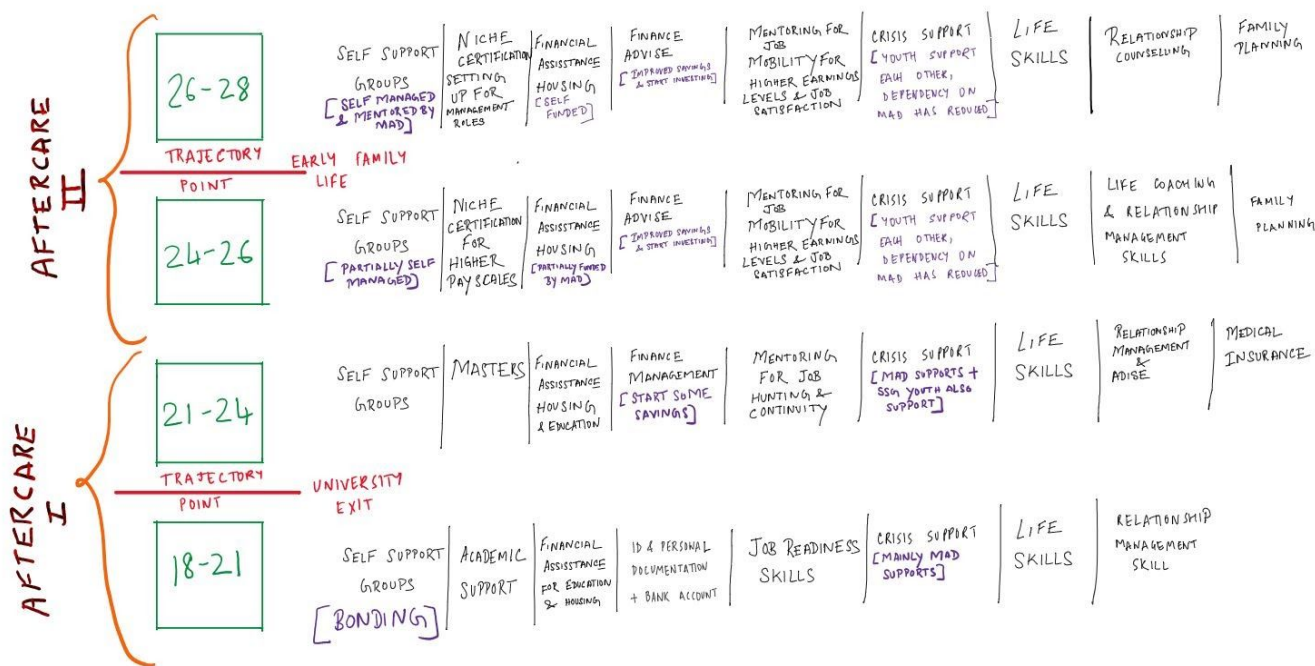 AFTERCARE
II
26-28
SELF SUPPORT
GROUPS
[SELF MANAGED
& MENTORED BY
MAD]
NICHE
CERTIFICATION
SETTING
UP FOR
MANAGEMENT
ROLES
FINANCIAL
ASSISSTANCE
HOUSING
[SELF
FUNDED]
FINANCE
ADVISE
[IMPROVED SAVINGS
& START INVESTING]
MENTORING FOR
JOB
MOBILITY FOR
HIGHER EARNINGS
LEVELS & JOB
SATISFACTION
CRISIS SUPPORT
[YOUTH SUPPORT
EACH OTHER,
DEPENDENCY ON
MAD HAS REDUCED]
LIFE
SKILLS
RELATIONSHIP
COUNSELLING
FAMILY
PLANNING
TRAJECTORY
POINT
EARLY FAMILY
LIFE
24-26
SELF SUPPORT
GROUPS
[PARTIALLY SELF
MANAGED]
NICHE
CERTIFICATION
FOR
HIGHER
PAYSCALES
FINANCIAL
ASSISSTANCE
HOUSING
[PARTIALLY FUNDED
BY MAD]
FINANCE
ADVISE
[IMPROVED SAVINGS
& START INVESTING]
MENTORING FOR
JOB
MOBILITY FOR
HIGHER EARNINGS
LEVELS & JOB
SATISFACTION
CRISIS SUPPORT
[YOUTH SUPPORT
EACH OTHER,
DEPENDENCY ON
MAD HAS REDUCED]
LIFE
SKILLS
LIFE COACHING
& RELATIONSHIP
MANAGEMENT
SKILLS
FAMILY
PLANNING
AFTERCARE
I
21-24
SELF SUPPORT
GROUPS
MASTERS
FINANCIAL
ASSISSTANCE
HOUSING
& EDUCATION
FINANCE
MANAGEMENT
[START SOME
SAVINGS]
MENTORING
FOR JOB
HUNTING &
CONTINUITY
CRISIS SUPPORT
[MAD SUPPORTS +
SSG YOUTH ALSO
SUPPORT]
LIFE
SKILLS
RELATIONSHIP
MANAGEMENT
&
ADISE
MEDICAL
INSURANCE
TRAJECTORY
POINT
UNIVERSITY
EXIT
18-21
SELF SUPPORT
GROUPS
[BONDING]
ACADEMIC
SUPPORT
FINANCIAL
ASSISSTANCE
FOR EDUCATION
& HOUSING
ID & PERSONAL
DOCUMENTATION
+ BANK ACCOUNT
JOB READINESS
SKILLS
CRISIS SUPPORT
[MAINLY MAD
SUPPORTS]
LIFE
SKILLS
RELATIONSHIP
MANAGEMENT
SKILL